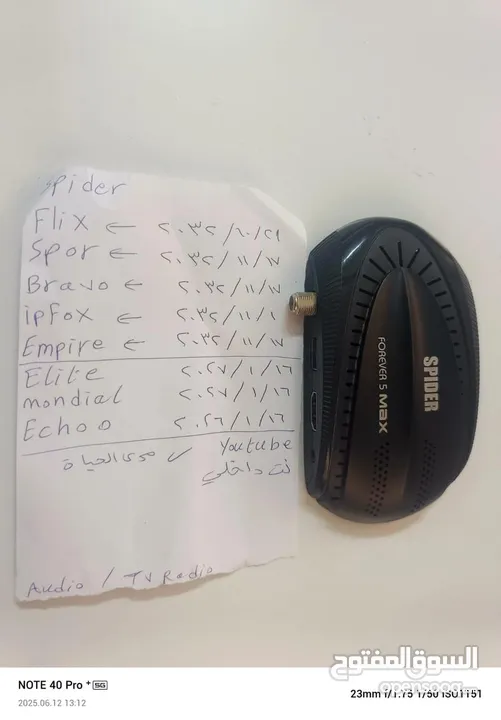 Spider
Flix ← ٢٠٣٢/١٠/٢١
Spor ← ٢٠٣٢/١١/١٧
Bravo ← ٢٠٣٢/١١/١٧
ipFox ← ٢٠٣٢/١١/١
Empire ← ٢٠٣٢/١١/١٧
Elite ٢٠٢٧/١/١٦
mondial ٢٠٢٧/١/١٦
Echoo ٢٠٢٦/١/١٦
Youtube ✓ مدى الحياة
نت داخلي
Audio / TV Radio
SPIDER
FOREVER S MAX
السوق المفتوح
opensooq.com
NOTE 40 Pro+ 5G
2025.06.12 13:12
23mm f/1.75 1/50 ISO1151